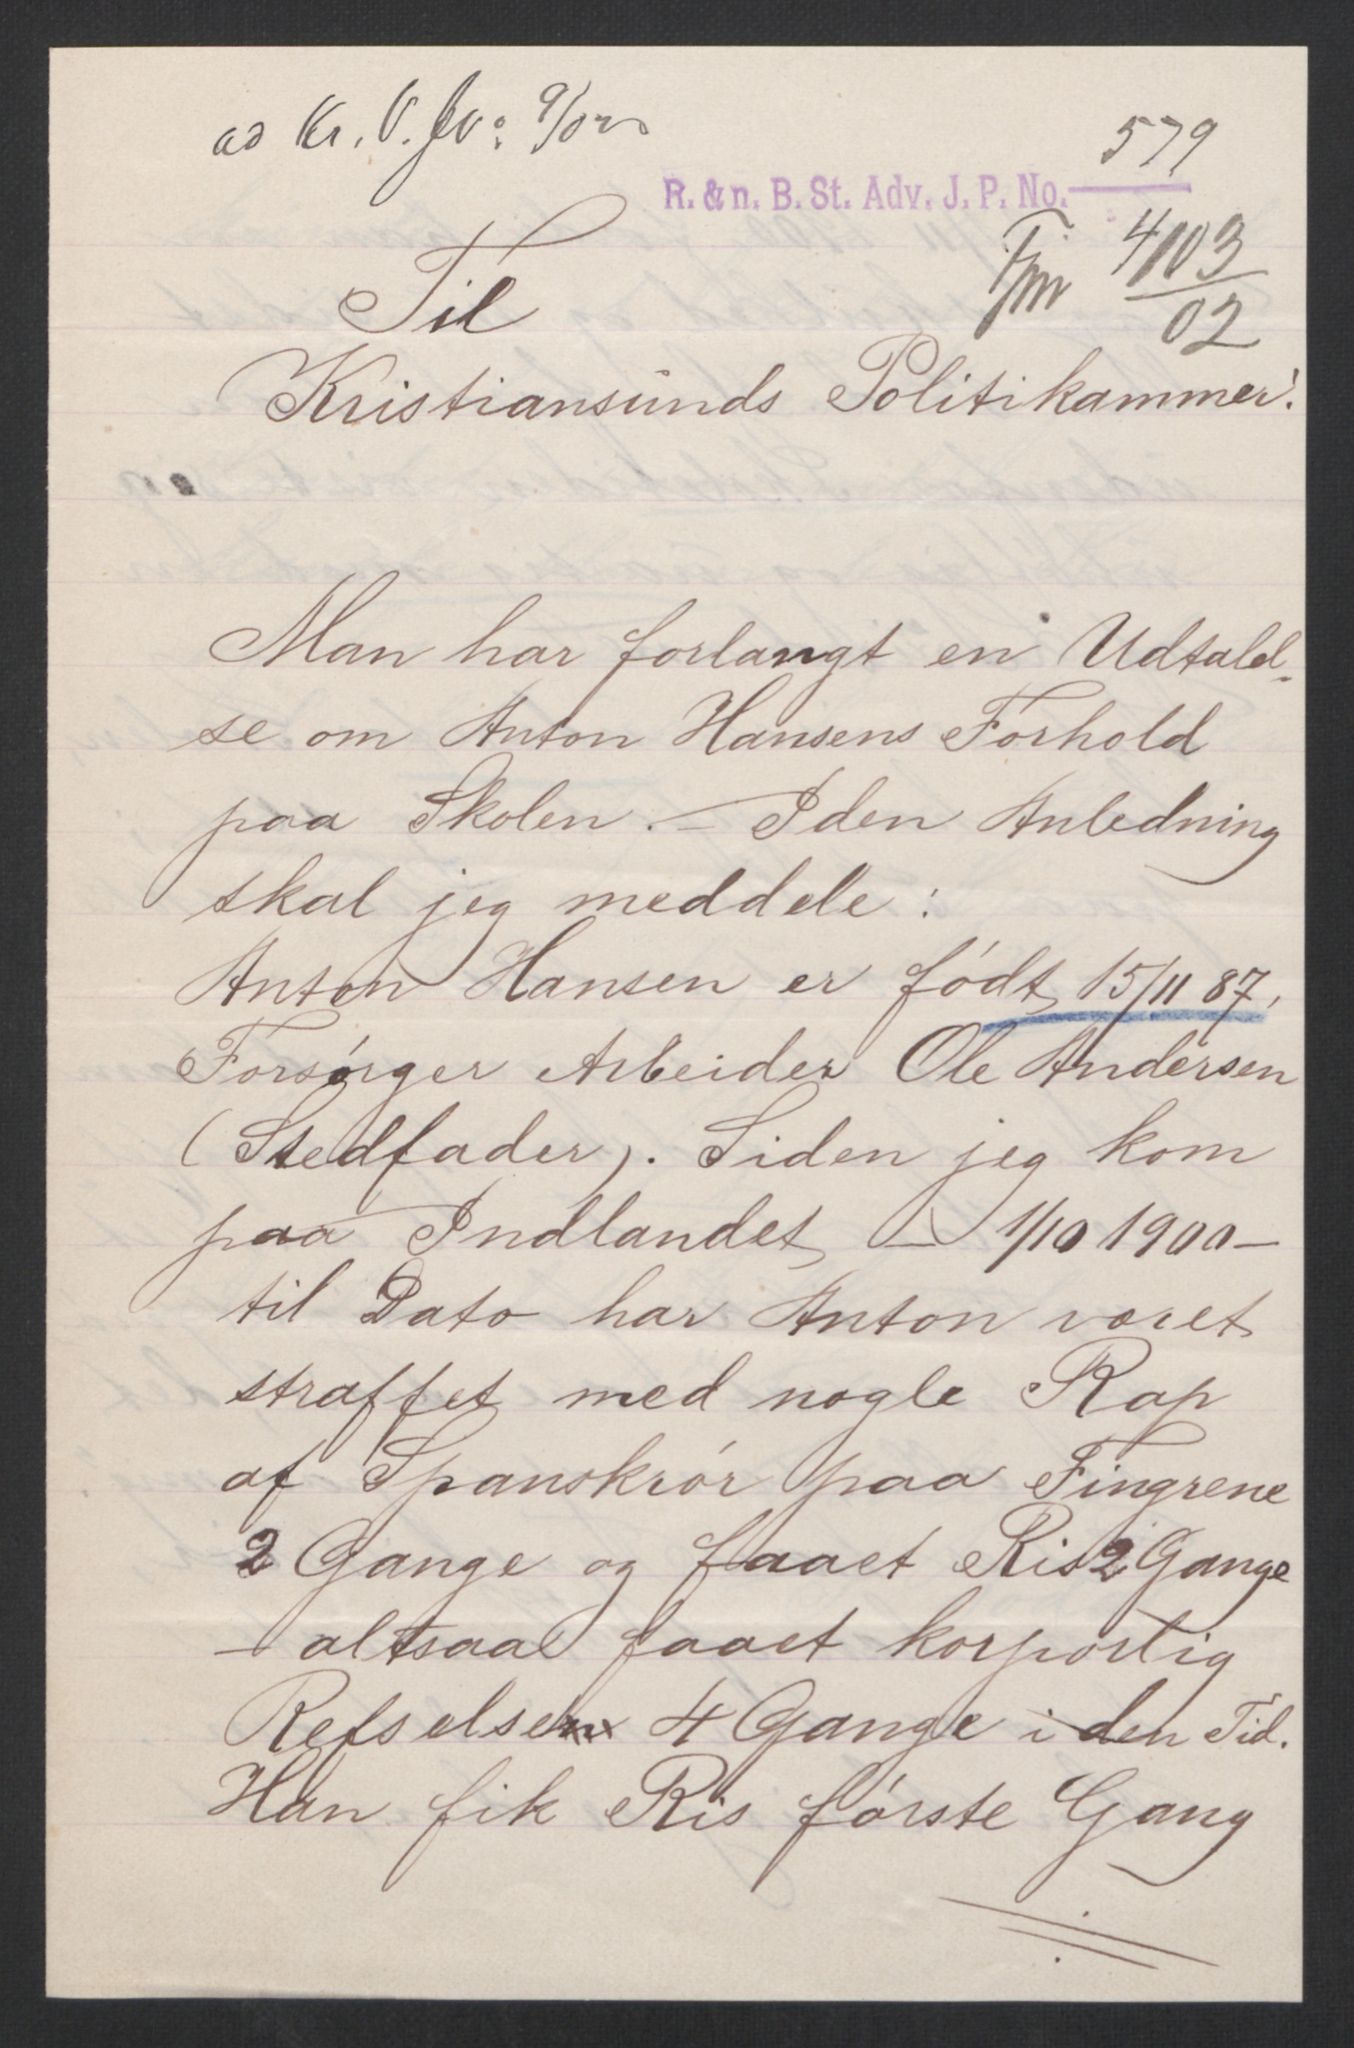 ad Kr. V. Jv: 9/02
579
R. & n. B. St. Adv. J. P. No.
4103
02
Til
Kristiansunds Politikammer!
Man har forlangt en Udtalel-
se om Anton Hansens Forhold
paa Skolen. – I den Anledning
skal jeg meddele:
Anton Hansen er født 15/11 87,
Forsørger Arbeider Ole Andersen
(Stedfader). Siden jeg kom
paa Indlandet – 1/10 1900 –
til Dato har Anton været
straffet med nogle Rap
af Spanskrør paa Fingrene
2 Gange og faaet Ris 2 Gange
– altsaa faaet korporlig
Refselse 4 Gange i den Tid.
Han fik Ris første Gang